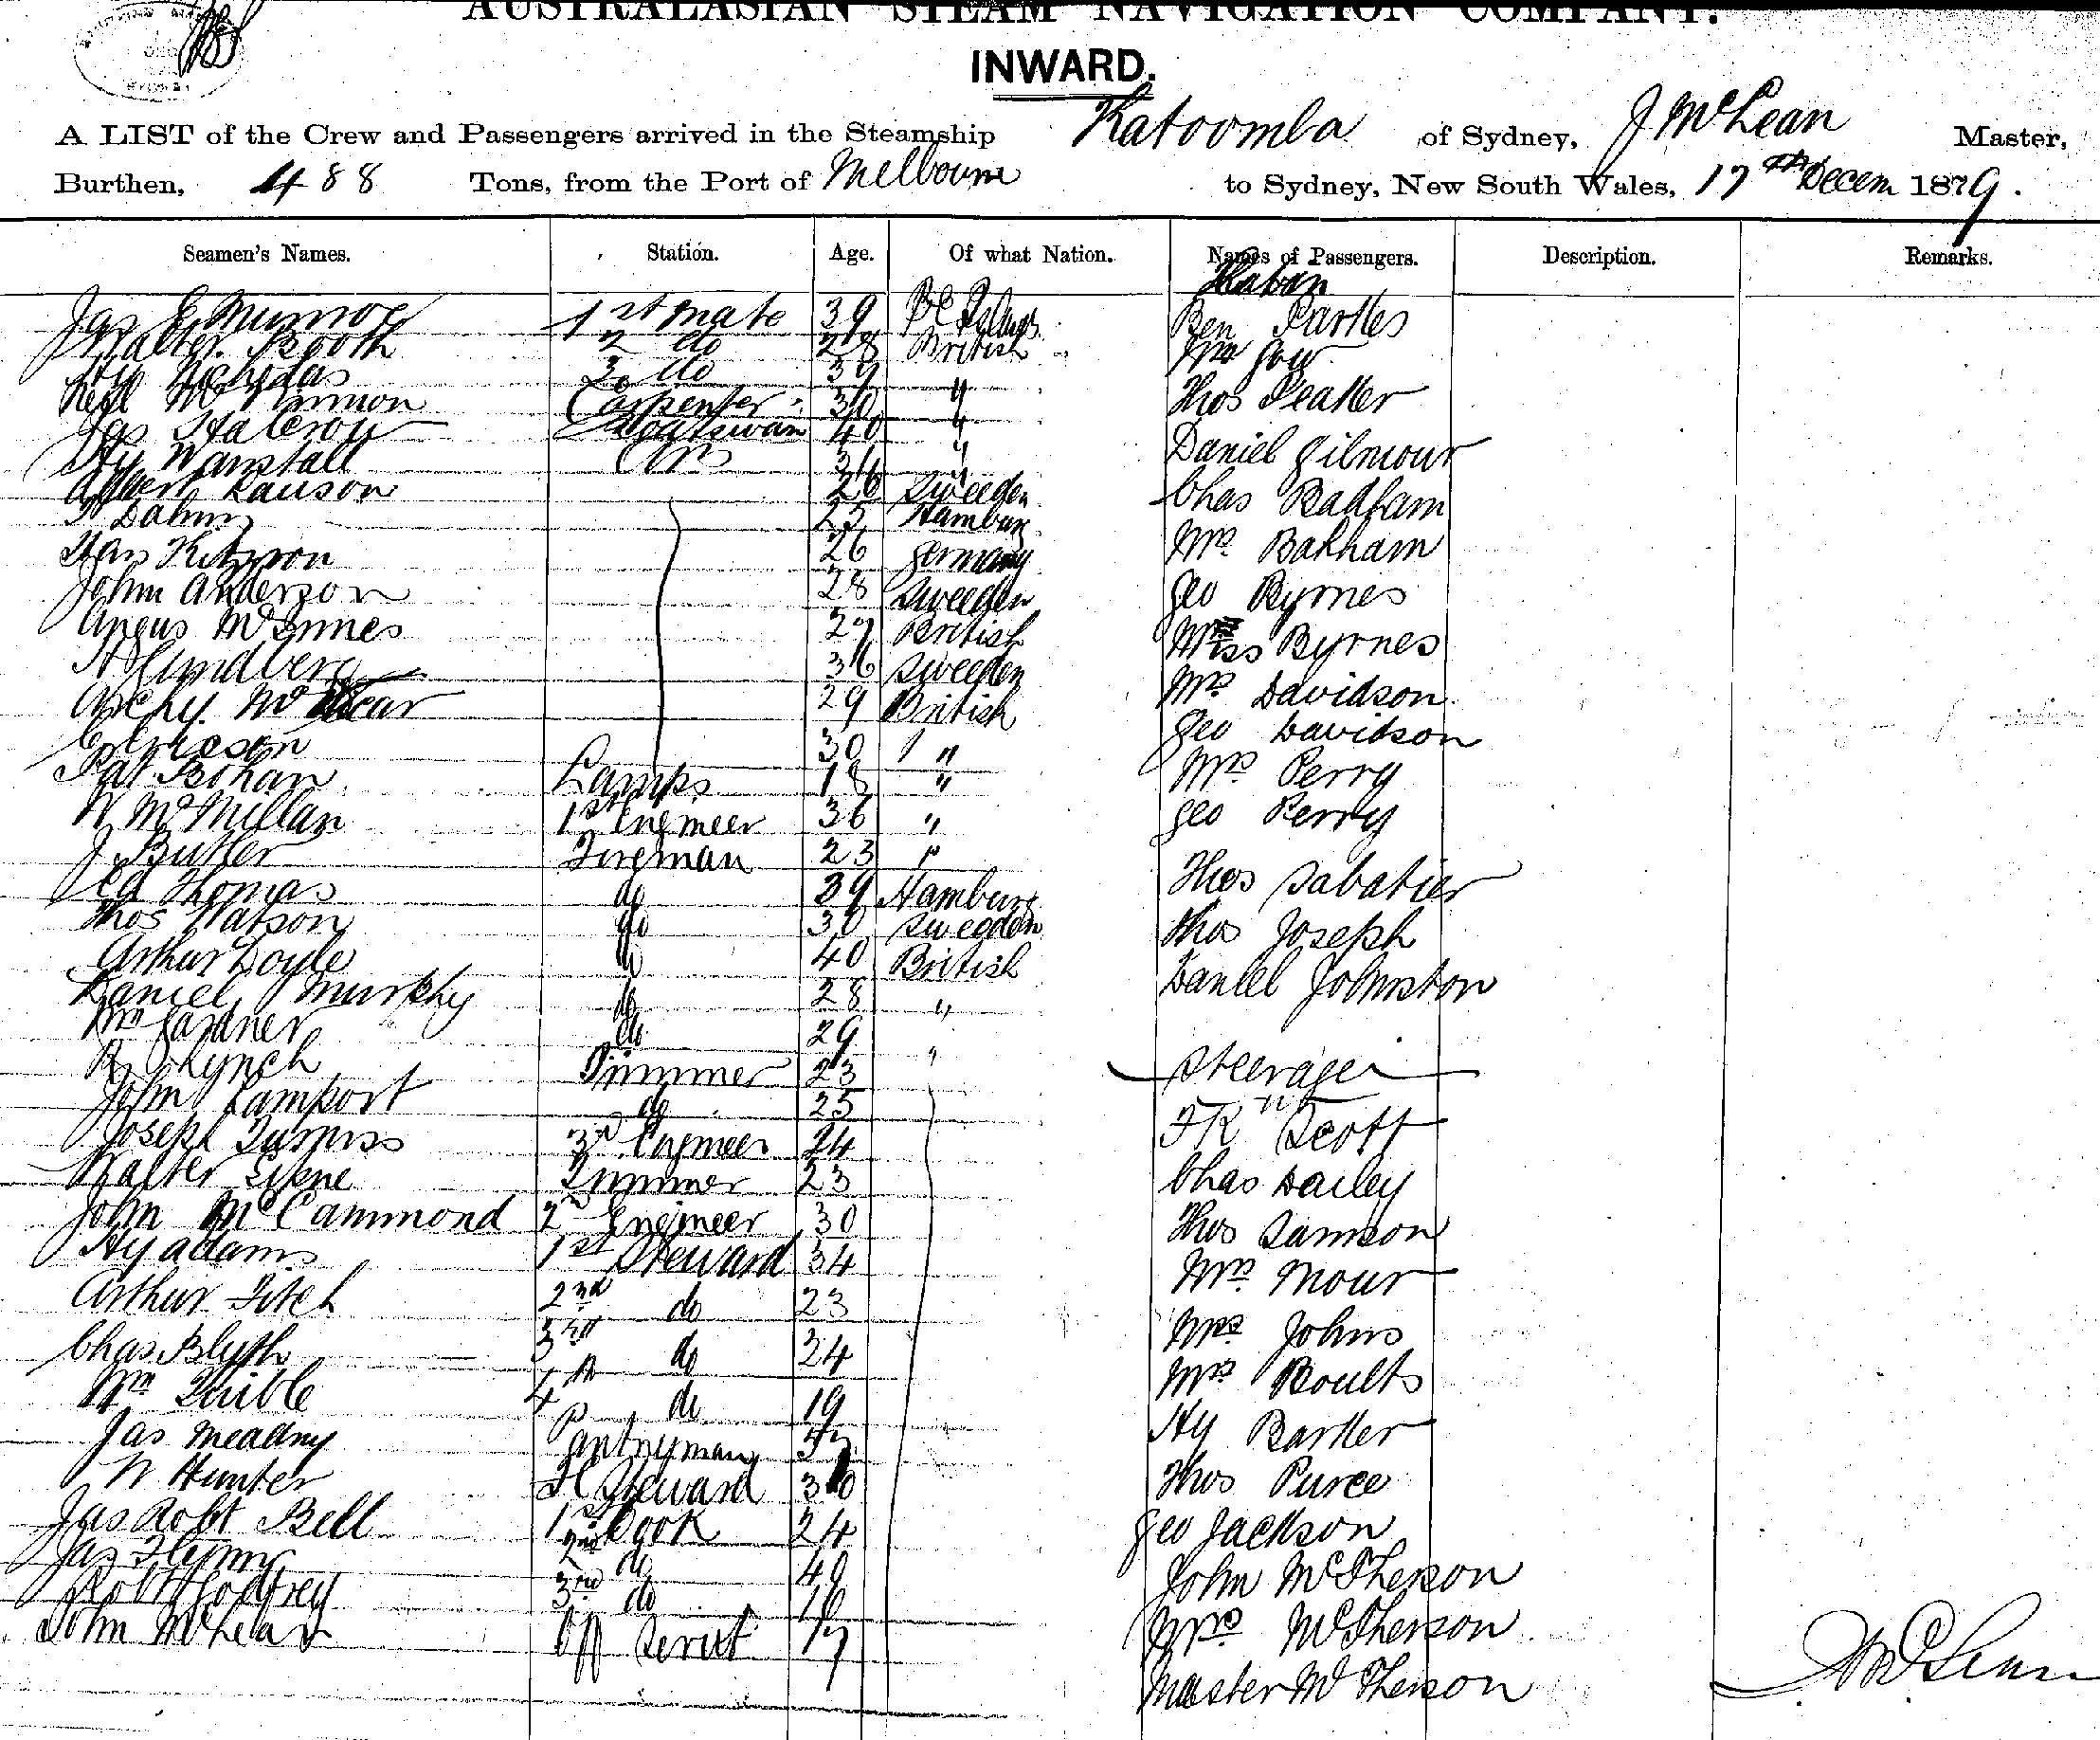 AUSTRALASIAN STEAM NAVIGATION COMPANY.
INWARD.
A LIST of the Crew and Passengers arrived in the Steamship Katoomba of Sydney, J McLean Master,
Burthen, 488 Tons, from the Port of Melbourne to Sydney, New South Wales, 17th Decem 1879.
Seamen's Names. Station. Age. Of what Nation. Names of Passengers. Description. Remarks.
Jas E Munroe 1st mate 39 Ben Parkes
Walter Booth 2 do 28 British Mrs Gow
3 do 39 " Thos
Neil McKinnon Carpenter 30 "
Jas Halcrow Boatswain 40 " Daniel Gilmour
Hy Wanstall 34 "
Albert 26 Sweeden Chas Badham
Dahm 25 Hamburg
Germany Mrs Badham
26
John Anderson 28 Sweeden Geo Byrnes
Angus McInnes 27 British Miss Byrnes
H Lundberg 36 Sweeden
Archy. McVicar 29 British Mrs Davidson
Geo Davidson
30 "
Pat Bohan Lamps 18 " Mrs Perry
W McMillan 1st Engineer 36 " Geo Perry
J Butler Fireman 23 "
Ed Thomas do 39 Hamburg Thos Sabatier
Thos Watson do 30 Sweeden Thos Joseph
Arthur Doyle do 40 British Daniel Johnston
Daniel Murphy do 28 "
Wm Gardner do 29 "
R Lynch Trimmer 23 Steerage
John Lamport do 25 Scott
Joseph 3rd Engineer 24
Walter Trimmer 23 Chas Dailey
John McCammond 2nd Engineer 30 Thos Samson
Hy Adams 1st Steward 34 Mrs Mour
Arthur Fitch 2nd do 23 Mrs Johns
Chas Blyth 3rd do 24 Mrs Boults
Wm 4th do 19 Hy Barker
Jas Pantryman
W Hunter Steward 30 Thos Purce
Jas Robt Bell 1st Cook 24 Geo Jackson
Jas Flynn 2nd do 40 John McPherson
Robt Godfrey 3rd do Mrs McPherson
John McLean Off Servt 17 Master McPherson
J McLean